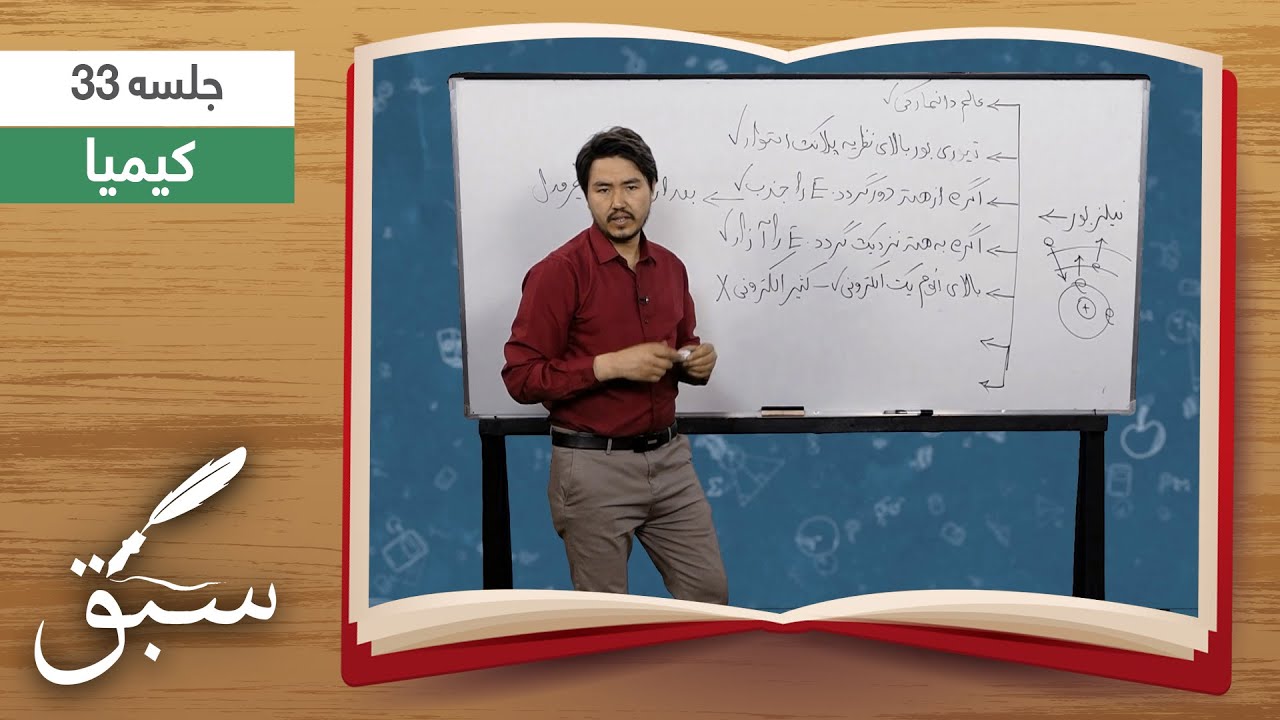 جلسه 33
کیمیا
سبق
عالم دانمارکی ✓
تیوری بور بالای نظریه پلانک استوار ✓
اگر e از هسته دور گردد. E را جذب ✓ ← بعد از
اگر e به هسته نزدیک گردد. E را آزاد ✓
بالای اتوم یک الکترونی ✓ – کثیر الکترونی X
نیلز بور ←
e e e e +